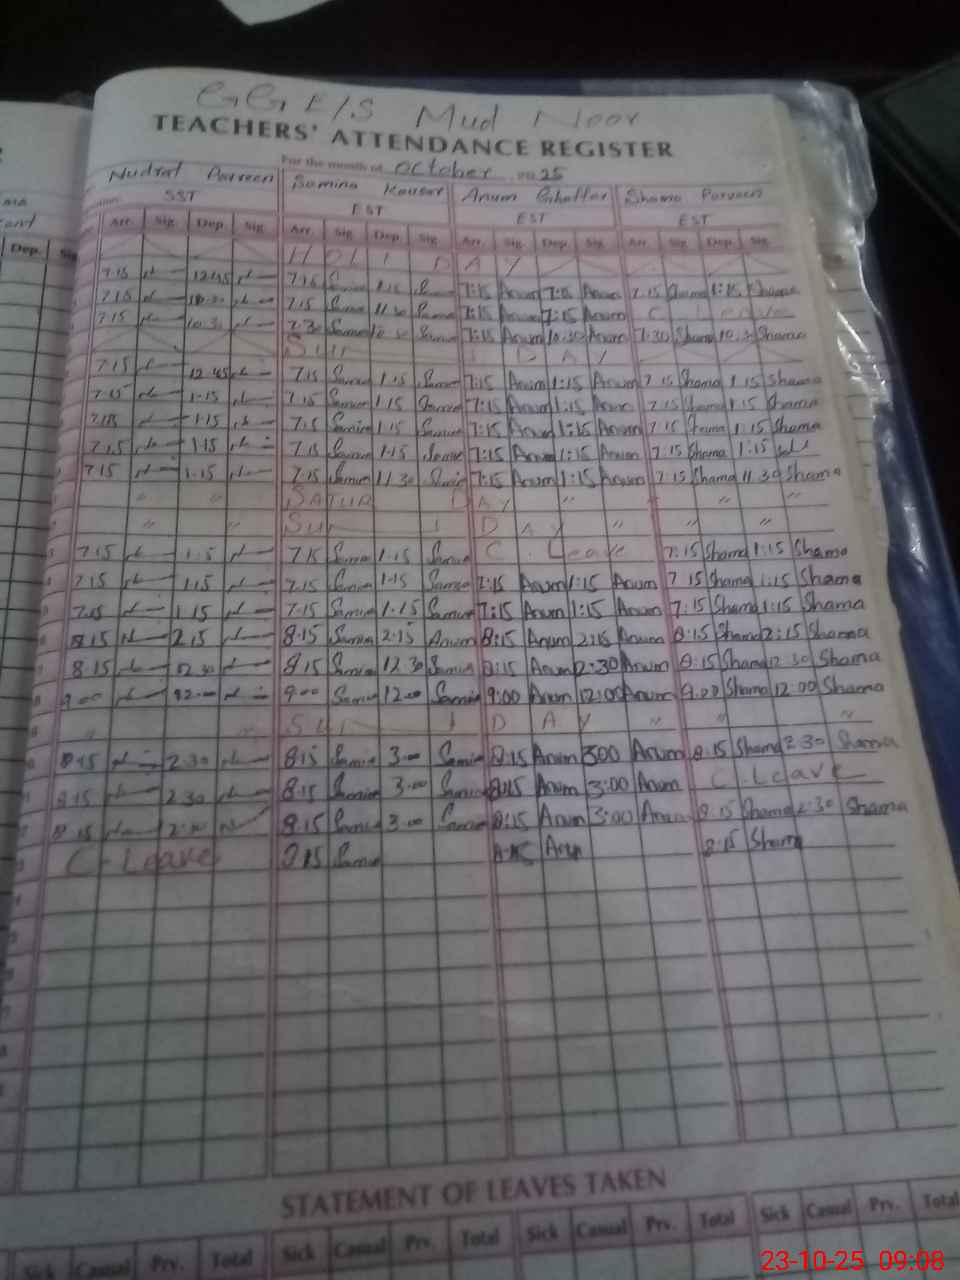 GGE/S Mud Noor
TEACHERS' ATTENDANCE REGISTER
For the month of October 2025
Nudrat Parveen Samina Kousar Anum Ghaffar Shama Parveen
SST EST EST EST
Dep. Arr. Sig. Dep. Sig. Arr. Sig. Dep. Sig. Arr. Sig. Dep. Sig. Arr. Sig. Dep. Sig.
HOLI DAY
7:15 12:45 7:15 1:15 7:15 Anum 7:15 Anum 7:15 Shama 1:15 Shama
7:15 10:30 7:15 Samina 11:30 7:15 Anum 7:15 Anum C. Leave
7:15 10:30 7:30 Samina 7:15 Anum 10:30 Anum 7:30 Shama 10:30 Shama
Sun DAY
7:15 12:45 7:15 Samina 1:15 Samina 7:15 Anum 1:15 Anum 7:15 Shama 1:15 Shama
7:15 1:15 7:15 Samina 1:15 Samina 7:15 Anum 1:15 Anum 7:15 Shama 1:15 Shama
7:15 1:15 7:15 Samina 1:15 Samina 7:15 Anum 1:15 Anum 7:15 Shama 1:15 Shama
7:15 1:15 7:15 Samina 1:15 Samina 7:15 Anum 1:15 Anum 7:15 Shama 1:15
7:15 1:15 7:15 Samina 11:30 Samina 7:15 Anum 1:15 Anum 7:15 Shama 11:30 Shama
" " SATUR DAY " " " "
" " Sun DAY " " "
7:15 1:15 7:15 Samina 1:15 Samina C. Leave 7:15 Shama 1:15 Shama
7:15 1:15 7:15 Samina 1:15 Samina 7:15 Anum 1:15 Anum 7:15 Shama 1:15 Shama
7:15 1:15 7:15 Samina 1:15 Samina 7:15 Anum 1:15 Anum 7:15 Shama 1:15 Shama
8:15 2:15 8:15 Samina 2:15 Anum 8:15 Anum 2:15 Anum 8:15 Shama 2:15 Shama
8:15 12:30 8:15 Samina 12:30 Samina 8:15 Anum 12:30 Anum 8:15 Shama 12:30 Shama
9:00 12:00 9:00 Samina 12:00 Samina 9:00 Anum 12:00 Anum 9:00 Shama 12:00 Shama
" " Sun DAY " " "
8:15 2:30 8:15 Samina 3:00 Samina 8:15 Anum 3:00 Anum 8:15 Shama 2:30 Shama
8:15 2:30 8:15 Samina 3:00 Samina 8:15 Anum 3:00 Anum C. Leave
8:15 8:15 Samina 3:00 Samina 8:15 Anum 3:00 Anum 8:15 Shama 2:30 Shama
C-Leave 8:15 Samina 8:15 Anum 8:15 Shama
STATEMENT OF LEAVES TAKEN
Sick Casual Prv. Total Sick Casual Prv. Total Sick Casual Prv. Total Sick Casual Prv. Total
23-10-25 09:08